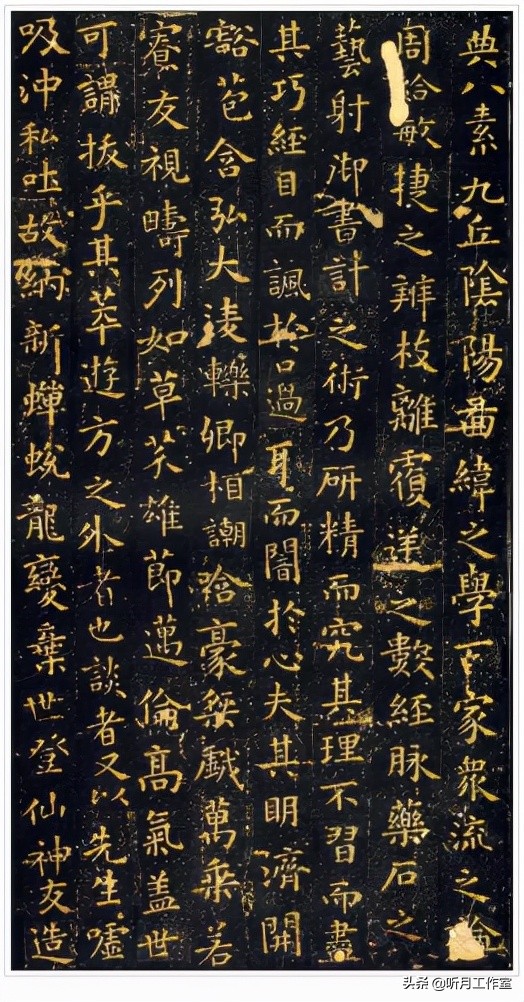 典八素九丘陰陽啚緯之學百家衆流之論
周給敏捷之辨枝離覆逆之數經脉藥石之
藝射御書計之術乃研精而究其理不習而盡
其巧經目而諷於口過耳而闇於心夫其明濟開
豁苞含弘大淩轢卿相謿哈豪桀戱萬乘若
寮友視疇列如草芥雄節邁倫高氣盖世
可謂拔乎其萃遊方之外者也談者又以先生噓
吸沖和吐故納新蟬蛻龍變棄世登仙神友造
头条 @听月工作室